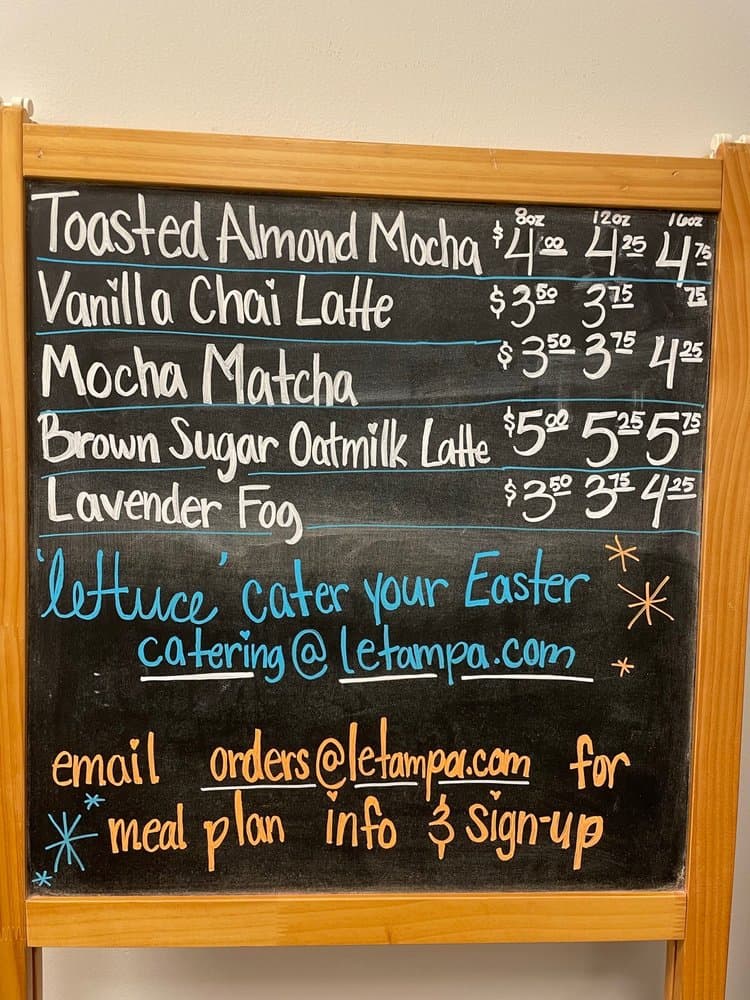 8oz 12oz 16oz
Toasted Almond Mocha $4.00 4.25 4.75
Vanilla Chai Latte $3.50 3.75 75
Mocha Matcha $3.50 3.75 4.25
Brown Sugar Oatmilk Latte $5.00 5.25 5.75
Lavender Fog $3.50 3.75 4.25
'lettuce' cater your Easter
catering@letampa.com
email orders@letampa.com for
meal plan info & sign-up